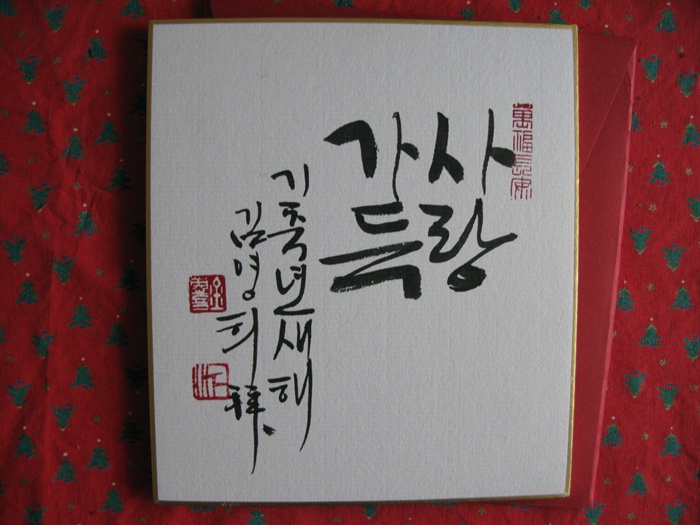 사랑
가득
기축년 새해
김영희 拜
萬福長寧